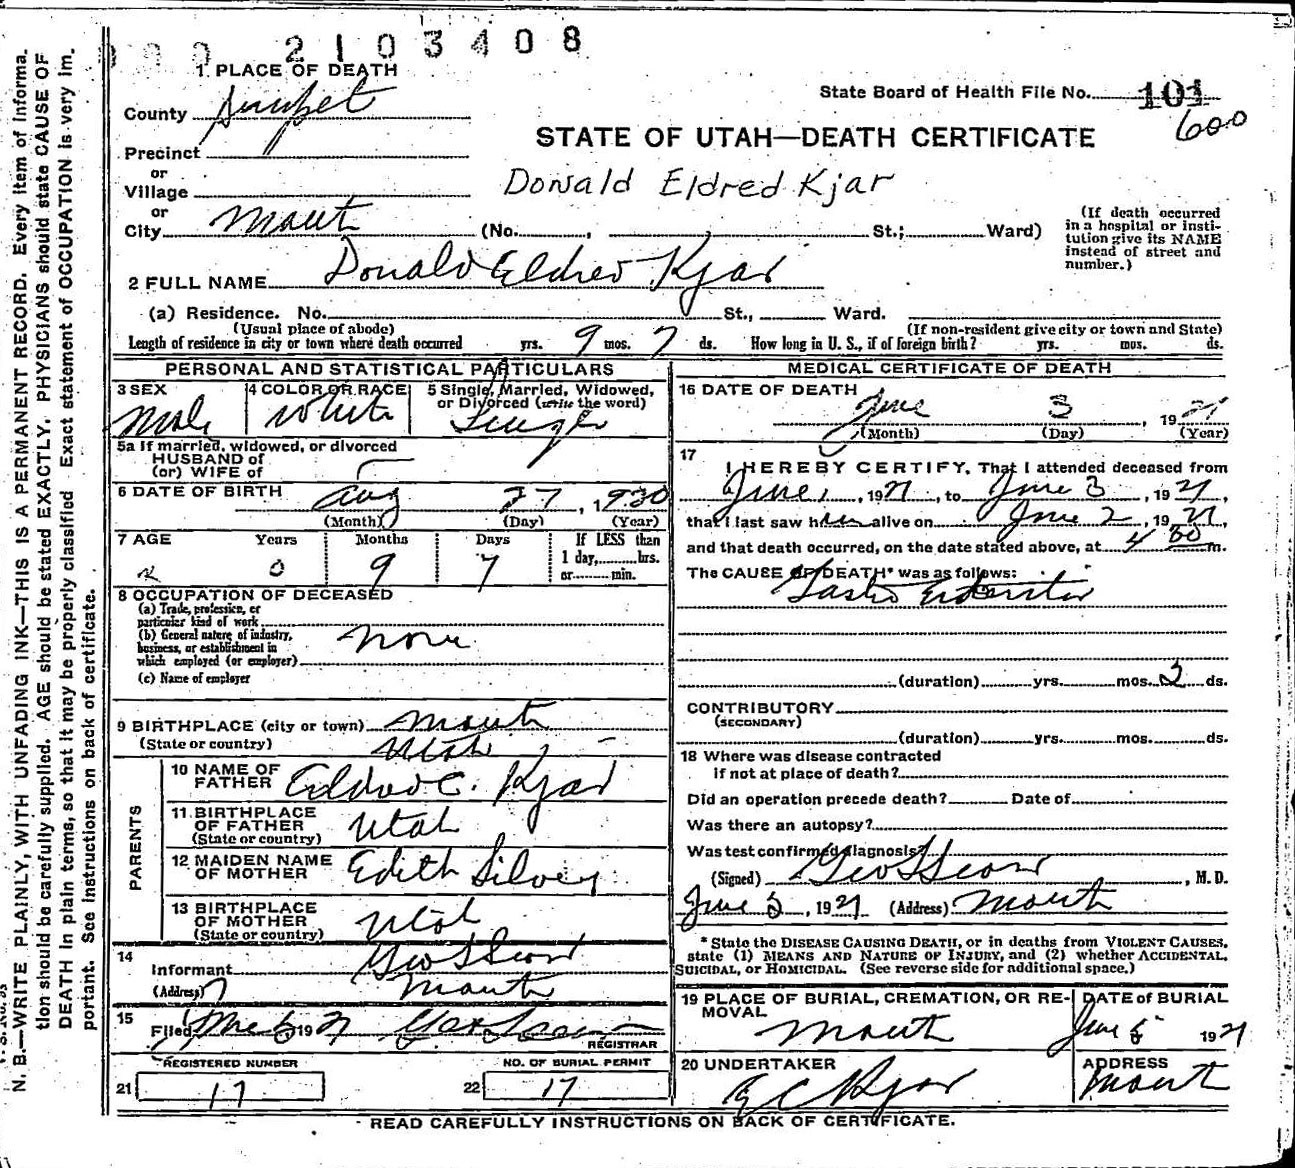 2103408
1 PLACE OF DEATH
County Sanpet
State Board of Health File No. 101
600
STATE OF UTAH—DEATH CERTIFICATE
Precinct
or
Village
Donald Eldred Kjar
or
City Manti (No. , St.; Ward)
(If death occurred
in a hospital or insti-
tution give its NAME
instead of street and
number.)
2 FULL NAME Donald Eldred Kjar
(a) Residence. No. St., Ward.
(Usual place of abode) (If non-resident give city or town and State)
Length of residence in city or town where death occurred yrs. 9 mos. 7 ds. How long in U. S., if of foreign birth? yrs. mos. ds.
PERSONAL AND STATISTICAL PARTICULARS
3 SEX 4 COLOR OR RACE 5 Single, Married, Widowed,
or Divorced (write the word)
Male White Single
5a If married, widowed, or divorced
HUSBAND of
(or) WIFE of
6 DATE OF BIRTH Aug 27, 1920
(Month) (Day) (Year)
7 AGE Years Months Days If LESS than
1 day, hrs.
or min.
0 9 7
8 OCCUPATION OF DECEASED
(a) Trade, profession, or
particular kind of work
(b) General nature of industry,
business, or establishment in
which employed (or employer)
None
(c) Name of employer
9 BIRTHPLACE (city or town) Manti
(State or country) Utah
PARENTS
10 NAME OF
FATHER Eldred C. Kjar
11 BIRTHPLACE
OF FATHER
(State or country) Utah
12 MAIDEN NAME
OF MOTHER Edith Silvey
13 BIRTHPLACE
OF MOTHER
(State or country) Utah
14
Informant Geo
(Address) Manti
15
Filed 192
REGISTRAR
REGISTERED NUMBER NO. OF BURIAL PERMIT
21 17 22 17
MEDICAL CERTIFICATE OF DEATH
16 DATE OF DEATH
June 3, 1921
(Month) (Day) (Year)
17
I HEREBY CERTIFY, That I attended deceased from
June 1, 1921, to June 3, 1921,
that I last saw him alive on June 2, 1921,
and that death occurred, on the date stated above, at 4 00 m.
The CAUSE OF DEATH* was as follows:
Gastro Enteritis
(duration) yrs. mos. 3 ds.
CONTRIBUTORY
(SECONDARY)
(duration) yrs. mos. ds.
18 Where was disease contracted
if not at place of death?
Did an operation precede death? Date of
Was there an autopsy?
Was test confirmed diagnosis?
(Signed) Geo , M. D.
June 3, 1921 (Address) Manti
* State the DISEASE CAUSING DEATH, or in deaths from VIOLENT CAUSES,
state (1) MEANS AND NATURE OF INJURY, and (2) whether ACCIDENTAL,
SUICIDAL, or HOMICIDAL. (See reverse side for additional space.)
19 PLACE OF BURIAL, CREMATION, OR RE-
MOVAL
Manti
DATE of BURIAL
June 5 1921
20 UNDERTAKER
E C Kjar
ADDRESS
Manti
READ CAREFULLY INSTRUCTIONS ON BACK OF CERTIFICATE.
N. B.—WRITE PLAINLY, WITH UNFADING INK—THIS IS A PERMANENT RECORD. Every item of Informa-
tion should be carefully supplied. AGE should be stated EXACTLY. PHYSICIANS should state CAUSE OF
DEATH in plain terms, so that it may be properly classified. Exact statement of OCCUPATION is very im-
portant. See instructions on back of certificate.